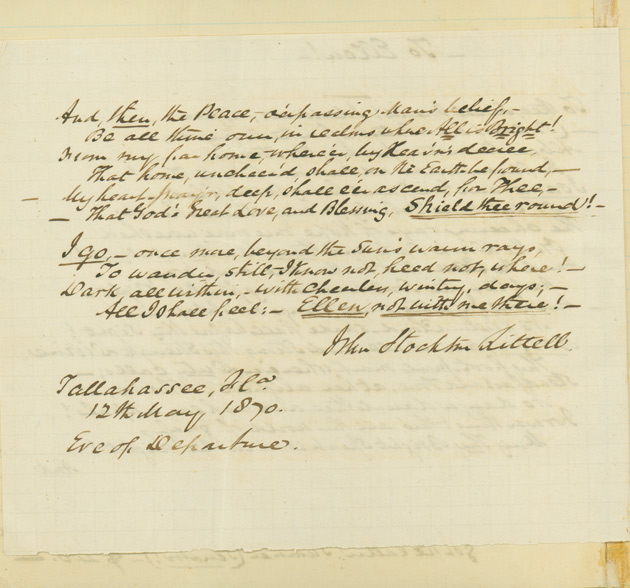 And, then, the Peace, – o'erpassing Man's belief, –
Be all thine own, in realms where All is Bright!
From my, far home, where'er, by Heav'n's decree,
That home, uncheer'd, shall, on the Earth be found, –
– My heart-pray'r, deep, shall e'er ascend, for Thee, –
– That God's Great Love, and Blessing, Shield thee round! –
I go, – once more, beyond the Sun's warm rays,
To wander, still, – I know not, heed not, where! –
Dark, all within, – with cheerless, wintry, days; –
All I shall feel: – Ellen, not with me there! –
John Stockton Littell.
Tallahassee, Fla
12th May, 1870.
Eve of Departure.